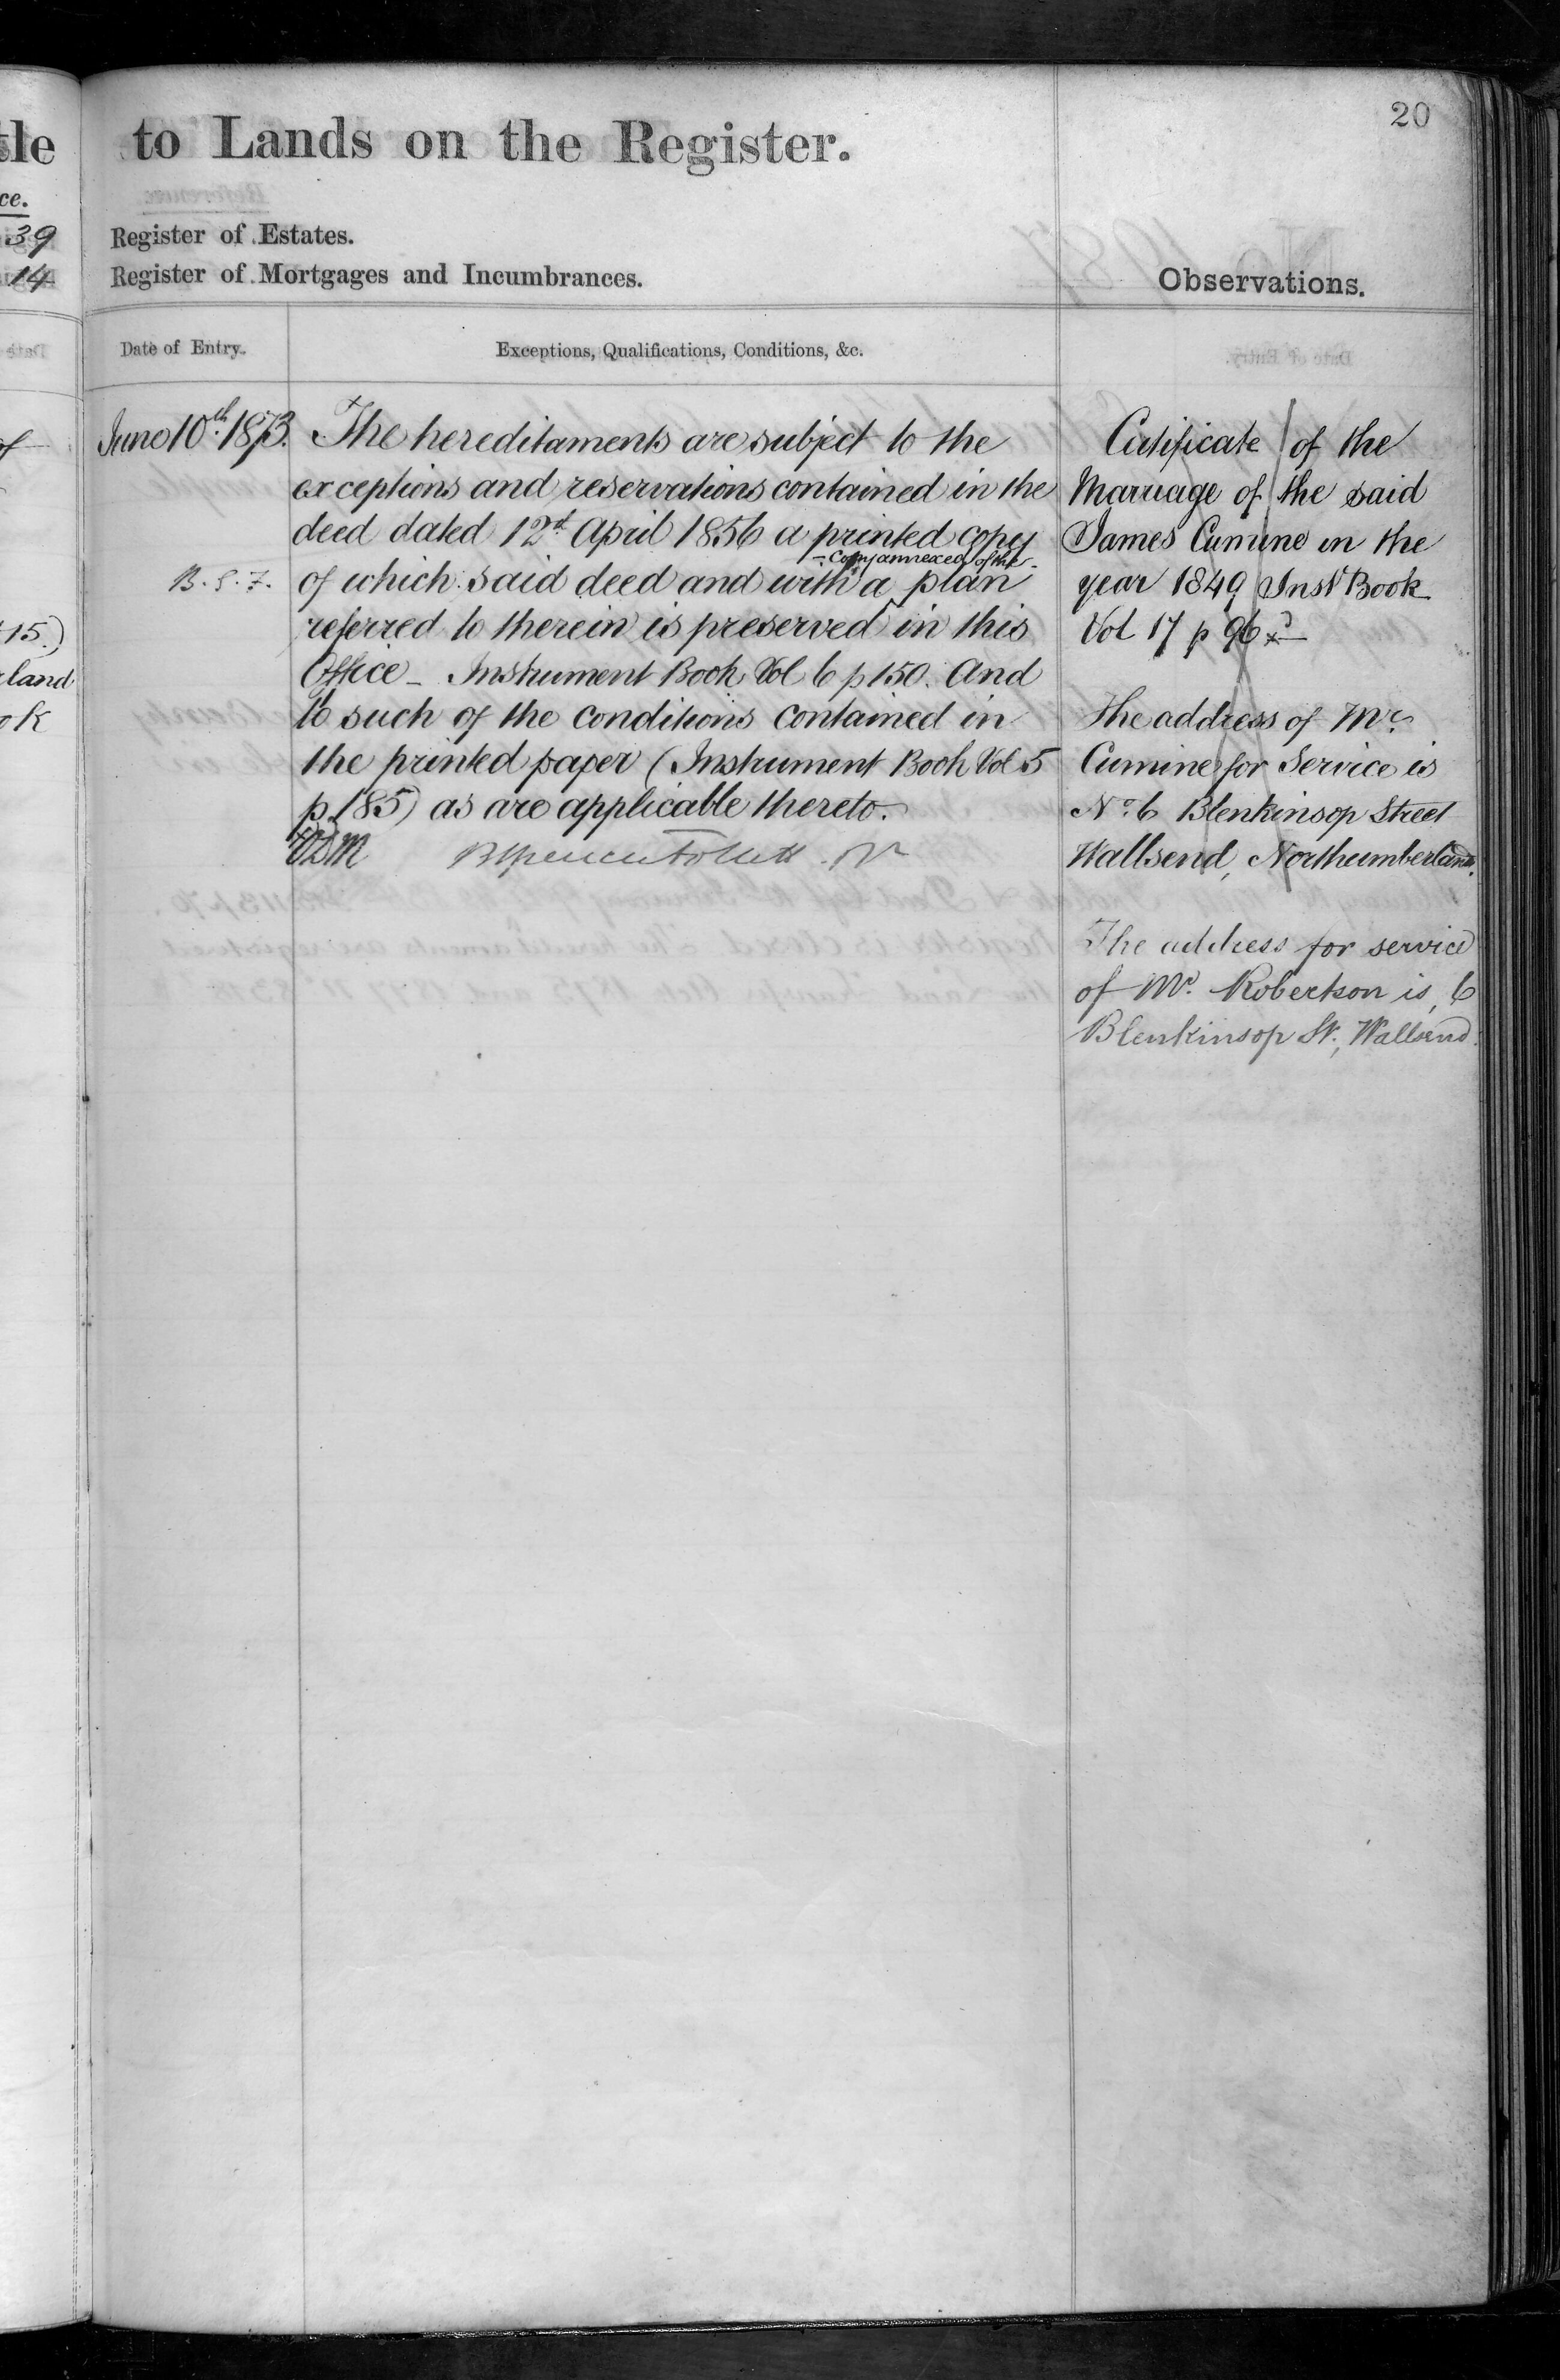 20
tle to Lands on the Register.
ce.
39 Register of Estates.
14 Register of Mortgages and Incumbrances.
Observations.
Date of Entry.
Exceptions, Qualifications, Conditions, &c.
June 10th 1873.
B.S.F.
The hereditaments are subject to the
exceptions and reservations contained in the
deed dated 12th April 1856 a printed copy
- Copy annexed of the -
of which said deed and with a plan
referred to therein is preserved in this
Office - Instrument Book Vol 6 p 150. And
to such of the conditions contained in
the printed paper (Instrument Book Vol 5
p. 185) as are applicable thereto.
15.)
land
ok
Certificate of the
Marriage of the said
James Cumine in the
year 1849 Instt Book
Vol 17 p 96
The address of Mr.
Cumine for Service is
No. 6 Blenkinsop Street
Wallsend, Northumberland.
The address for service
of Mr. Robertson is, 6
Blenkinsop St., Wallsend.